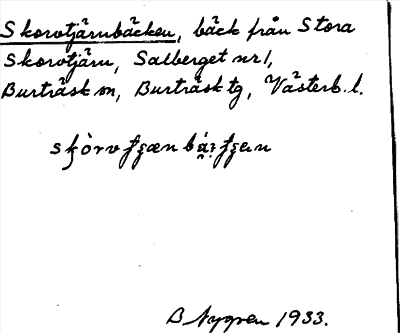 Skorvtjärnbäcken, bäck från Stora
Skorvtjärn, Salberget nr 1,
Burträsk sn, Burträsk tg, Västerb. l.
B Nygren 1933.